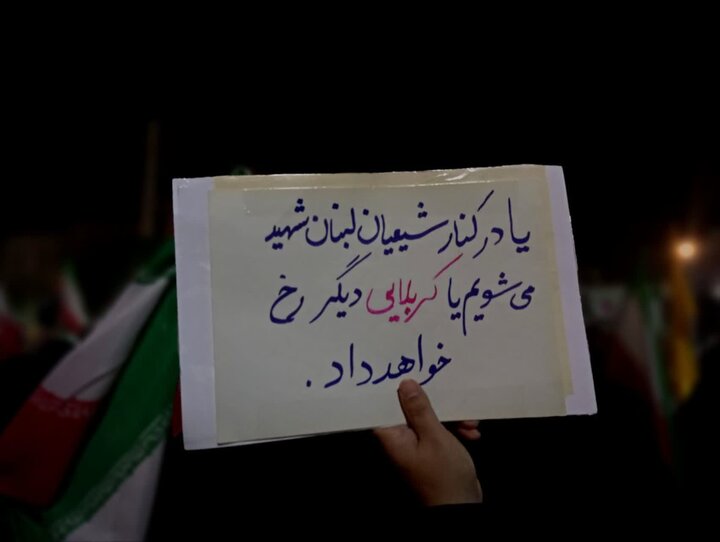 یا در کنار شیعیان لبنان شهید
می شویم یا کربلایی دیگر رخ
خواهد داد .